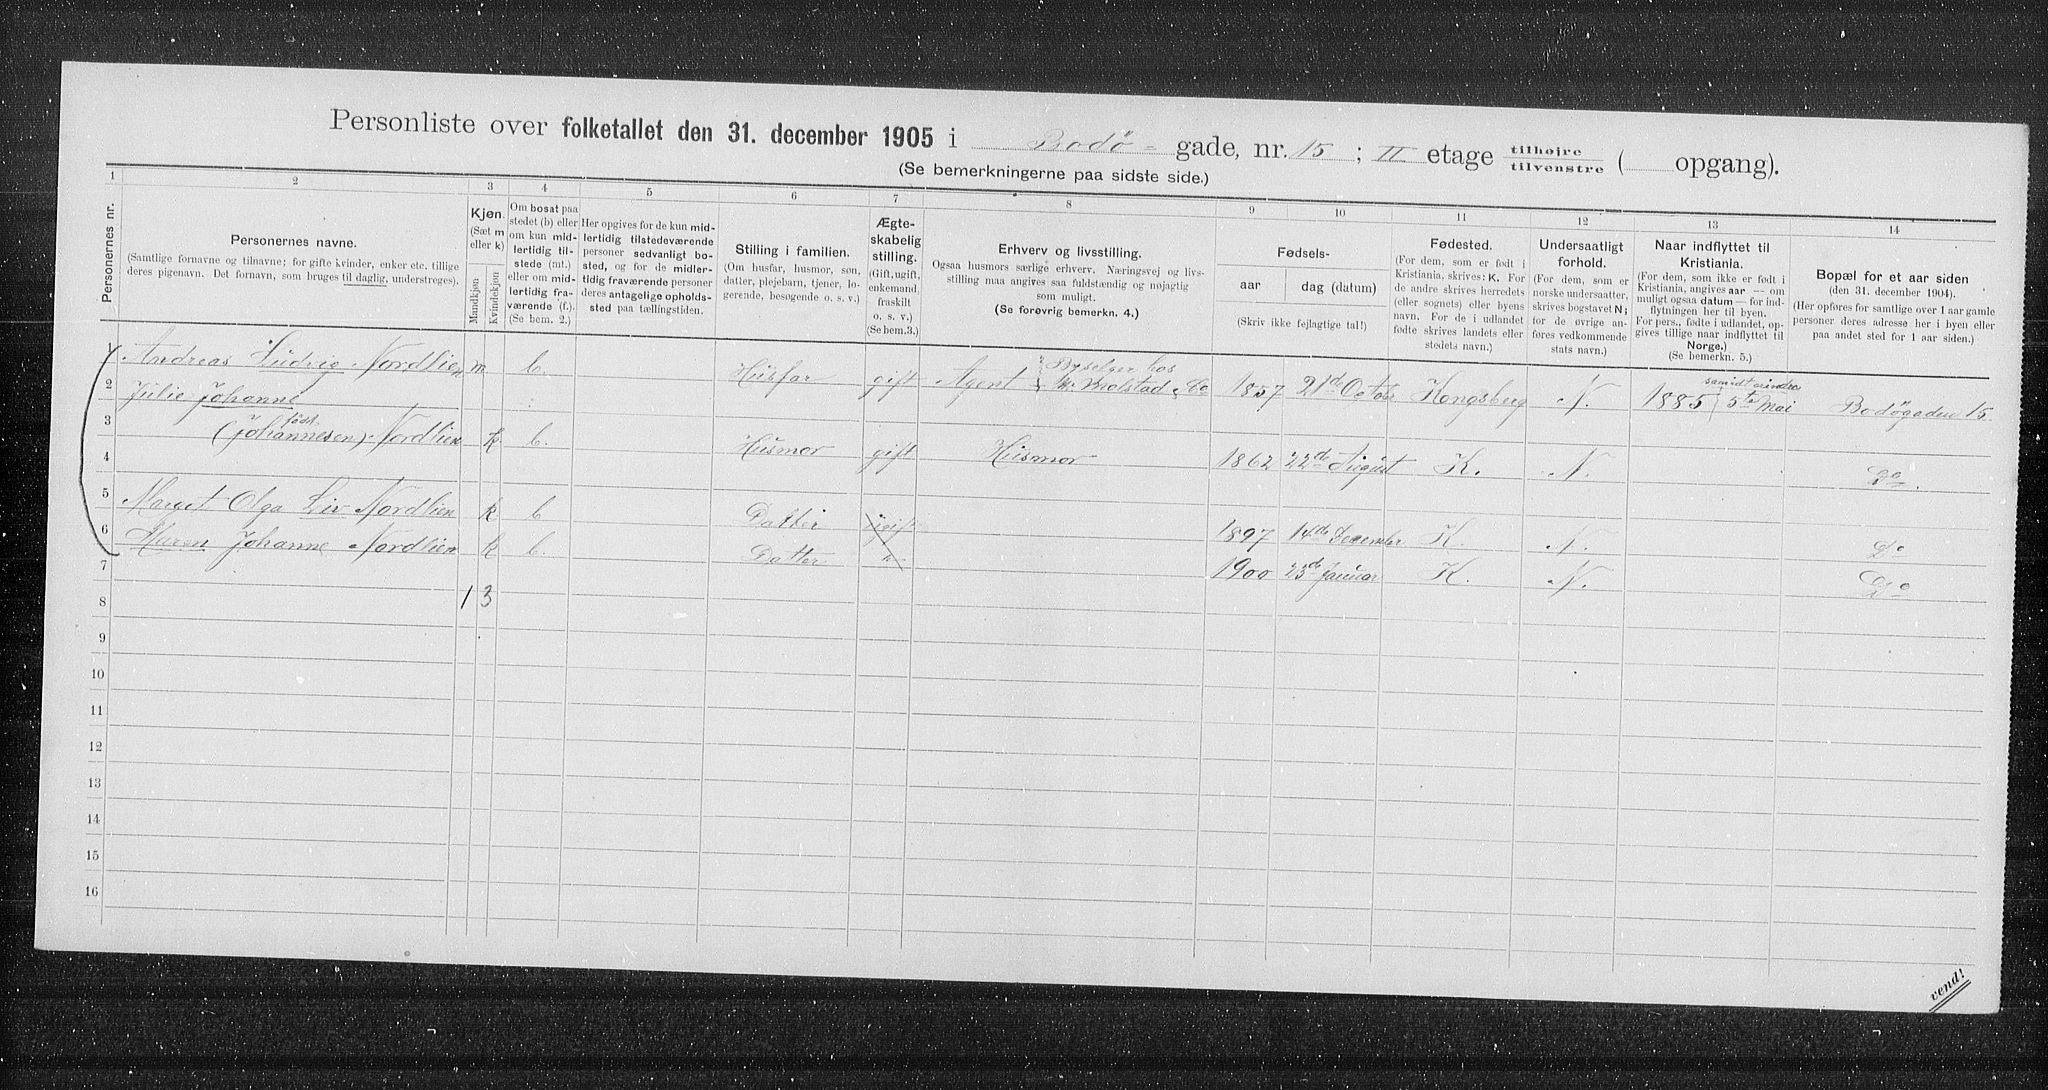 Personliste over folketallet den 31. december 1905 i Bodø- gade, nr. 15; II etage tilhøjre / tilvenstre ( opgang).
(Se bemerkningerne paa sidste side.)
1 2 3 4 5 6 7 8 9 10 11 12 13 14
Personernes nr.
Personernes navne.
(Samtlige fornavne og tilnavne; for gifte kvinder, enker etc. tillige
deres pigenavn. Det fornavn, som bruges til daglig, understreges).
Kjøn.
(Sæt m
eller k)
Mandkjøn
Kvindekjøn
Om bosat paa
stedet (b) eller
om kun mid-
lertidig til-
stede (mt.)
eller om mid-
lertidig fra-
værende (f.).
(Se bem. 2.)
Her opgives for de kun mid-
lertidig tilstedeværende
personer sedvanligt bo-
sted, og for de midler-
tidig fraværende personer
deres antagelige opholds-
sted paa tællingstiden.
Stilling i familien.
(Om husfar, husmor, søn,
datter, plejebarn, tjener, lo-
gerende, besøgende o. s. v.)
Ægte-
skabelig
stilling.
(Gift, ugift,
enkemand,
fraskilt
o. s. v.)
(Se bem. 3.)
Erhverv og livsstilling.
Ogsaa husmors særlige erhverv. Næringsvej og livs-
stilling maa angives saa fuldstændig og nøjagtig
som muligt.
(Se forøvrig bemerkn. 4.)
Fødsels-
aar
dag (datum)
(Skriv ikke fejlagtige tal!)
Fødested.
(For dem, som er født i
Kristiania, skrives: K. For
de andre skrives herredets
(eller sognets) eller byens
navn. For de i udlandet
fødte skrives landets eller
stedets navn.)
Undersaatligt
forhold.
(For dem, som er
norske undersaatter,
skrives bogstavet N;
for de øvrige an-
føres vedkommende
stats navn.)
Naar indflyttet til
Kristiania.
(For dem, som ikke er født i
Kristiania, angives aar — om
muligt ogsaa datum — for ind-
flytningen her til byen.
For pers., fødte i udlandet, op-
gives tillige naar indflyttet til
Norge.)
(Se bemerkn. 5.)
Bopæl for et aar siden
(den 31. december 1904).
(Her opføres for samtlige over 1 aar gamle
personer deres adresse her i byen eller
paa andet sted for 1 aar siden.)
1 Andreas Ludvig Nordlien m b. Husfar gift Agent Byselger hos & Co 1857 21de October Kongsberg N. 1885 5te Mai Bodøgaden 15.
2 Julie Johanne
3 (født Johannesen) Nordlien k b. Husmor gift Husmor 1862 22de August K. N. Do.
4
5 Marget Olga Liv Nordlien k b Datter ugift 1897 14de December K. N. Do
6 Maren Johanne Nordlien k b. Datter " 1900 23de Januar K. N. Do
7
8 1 3
9
10
11
12
13
14
15
16
vend!